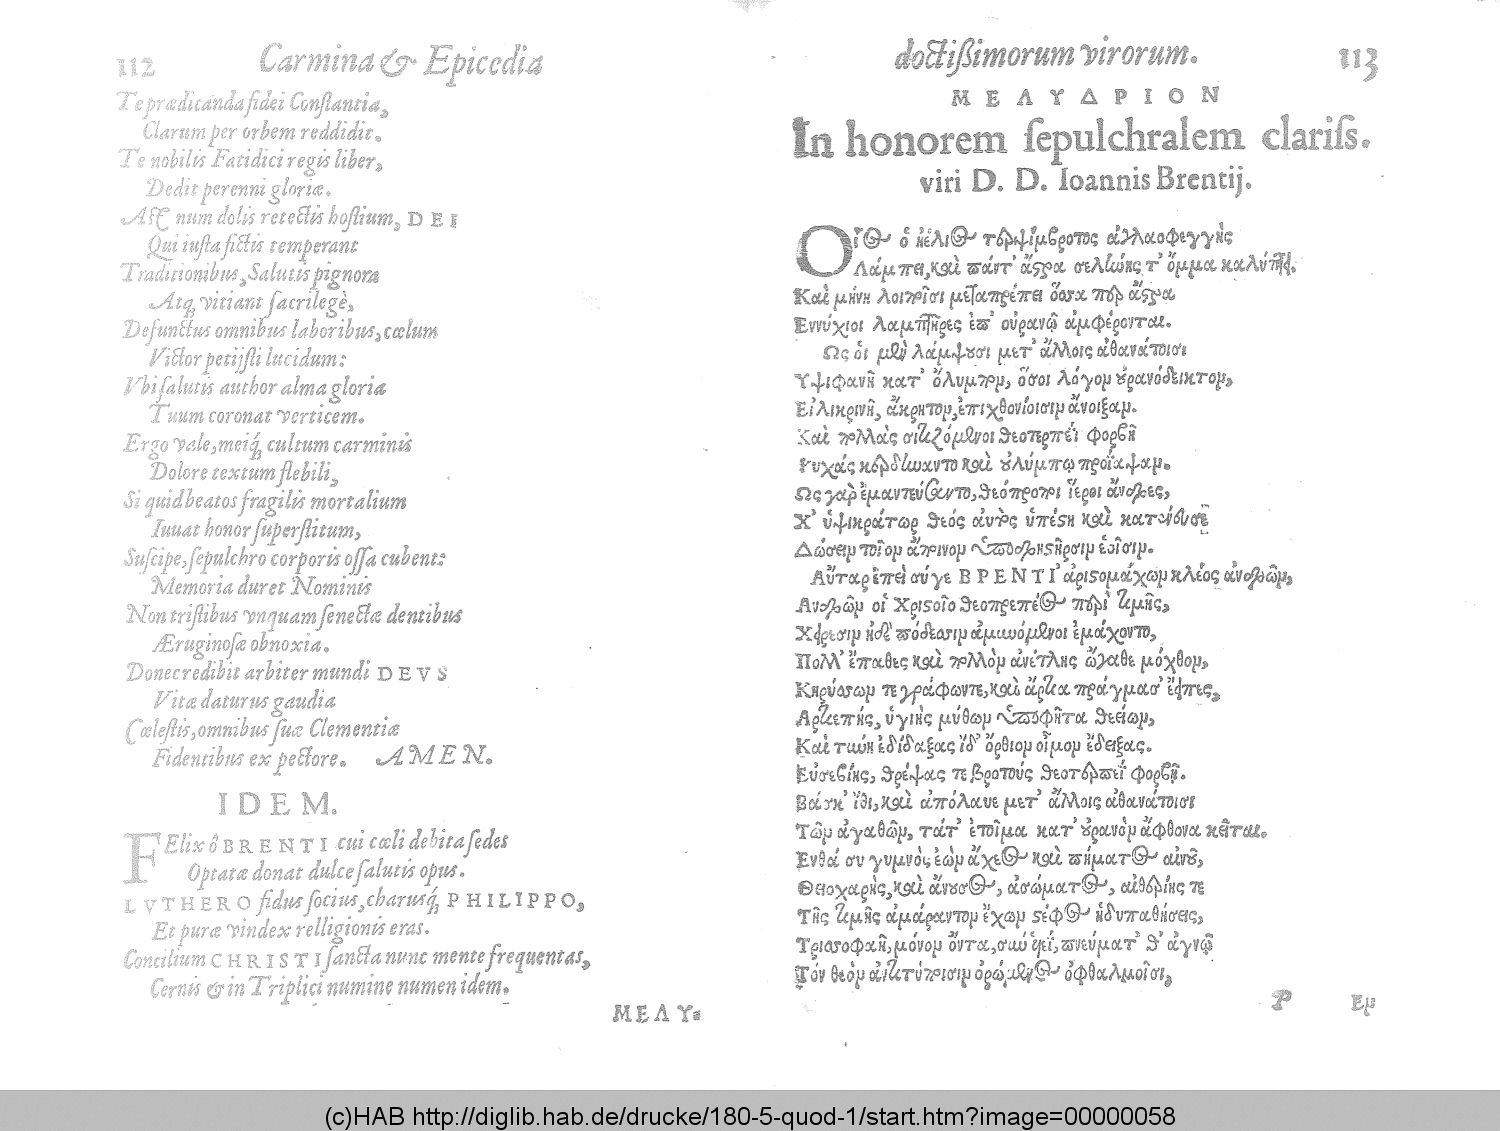 112 Carmina & Epicedia
Te prædicanda fidei Conſtantia,
Clarum per orbem reddidit.
Te nobilis Fatidici regis liber,
Dedit perenni gloriæ.
Aſt num dolis retectis hoſtium, DEI
Qui iuſta fictis temperant
Traditionibus, Salutis pignora
Atq; vitiant ſacrilegè,
Defunctus omnibus laboribus, cœlum
Victor petijſti lucidum:
Vbi ſalutis author alma gloria
Tuum coronat verticem.
Ergo vale, meiq́; cultum carminis
Dolore textum flebili,
Si quid beatos fragilis mortalium
Iuuat honor ſuperſtitum,
Suſcipe, ſepulchro corporis oſſa cubent:
Memoria duret Nominis
Non triſtibus vnquam ſenectæ dentibus
Æruginoſæ obnoxia.
Donec redibit arbiter mundi DEVS
Vitæ daturus gaudia
Cœleſtis, omnibus ſuæ Clementiæ
Fidentibus ex pectore. AMEN.
IDEM.
FElix ô BRENTI cui cœli debita ſedes
Optatæ donat dulce ſalutis opus.
LVTHERO fidus ſocius, charusq́; PHILIPPO,
Et puræ vindex relligionis eras.
Concilium CHRISTI ſancta nunc mente frequentas,
Cernis & in Triplici numine numen idem.
ΜΕΛΥ-
doctiſsimorum virorum. 113
ΜΕΛΥΔΡΙΟΝ
In honorem ſepulchralem clariſs.
viri D. D. Ioannis Brentij.
Οἷος ὁ ἠέλιος τερψίμβροτος ἀλλαοφεγγὴς
Λάμπει, καὶ πάντ' ἄστρα σελήνης τ' ὄμμα καλύπτει.
Καὶ μήνη λοιποῖσι μεταπρέπει ὅσσα περ ἄστρα
Εννύχιοι λαμπτῆρες ἐπ' οὐρανῷ ἀμφέρονται.
Ως οἱ μὲν λάμψουσι μετ' ἄλλοις ἀθανάτοισι
Υψιφανῆ κατ' ὄλυμπον, ὅσοι λόγον οὐρανόδεικτον,
Εἰλικρινῆ, ἄκρητον, ἐπιχθονίοισιν ἄνοιξαν.
Καὶ πολλὰς σιτιζόμενοι θεοπρεπέϊ φορβῇ
Ψυχάς κερδήναντο καὶ οὐλύμπῳ προΐαψαν.
Ως γὰρ ἐμαντεύσαντο, θεόπροποι ἱεροι ἄνδρες,
Χ' ὑψικράτωρ θεός αὐτὸς ὑπέστη καὶ κατένευσε
Δώσειν τοῖον ἄποινον ὑποδρηστῆρσιν ἑοῖσιν.
Αὔταρ ἐπεὶ σύγε ΒΡΕΝΤΙ' ἀριστομάχων κλέος ἀνδρῶν,
Ανδρῶν οἳ Χριστοῖο θεοπρεπέος περὶ τιμῆς,
Χείρεσιν ἠδὲ πόδεσσιν ἀμυνόμενοι ἐμάχοντο,
Πολλ' ἔπαθες καὶ πολλὸν ἀνέτλης ὦγαθε μόχθον,
Κηρύσσων τε γράφων τε, καὶ ἄρτια πράγματ' ἔειπες,
Αρτιεπής, ὑγιὴς μύθων ὑποφῆτα θείων,
Καὶ τωὴν ἐδίδαξας ἰδ' ὄρθιον οἶμον ἔδειξας.
Εὐσεβίης, θρέψας τε βροτοὺς θεοτερπέϊ φορβῇ.
Βάσκ' ἴθι, καὶ ἀπόλαυε μετ' ἄλλοις ἀθανάτοισι
Τῶν ἀγαθῶν, τάτ' ἐτοῖμα κατ' οὐρανὸν ἄφθονα κεῖται.
Ενθά συ γυμνὸς ἐὼν ἄχεος καὶ πήματος αἰνοῦ,
Θειοχαρὴς, καὶ ἄνουσος, ἀσώματος, αἰθέριός τε
Τῆς τιμῆς ἀμάραντον ἔχων στέφος ἡδυπαθήσεις,
Τρισσοφαῆ, μόνον ὄντα, σὺν υἱεῖ, πνεύματ' θ' ἁγνῷ
Τὸν θεὸν ἀντιτύποισιν ὁρώμενος ὀφθαλμοῖσι,
P Εν
(c)HAB http://diglib.hab.de/drucke/180-5-quod-1/start.htm?image=00000058